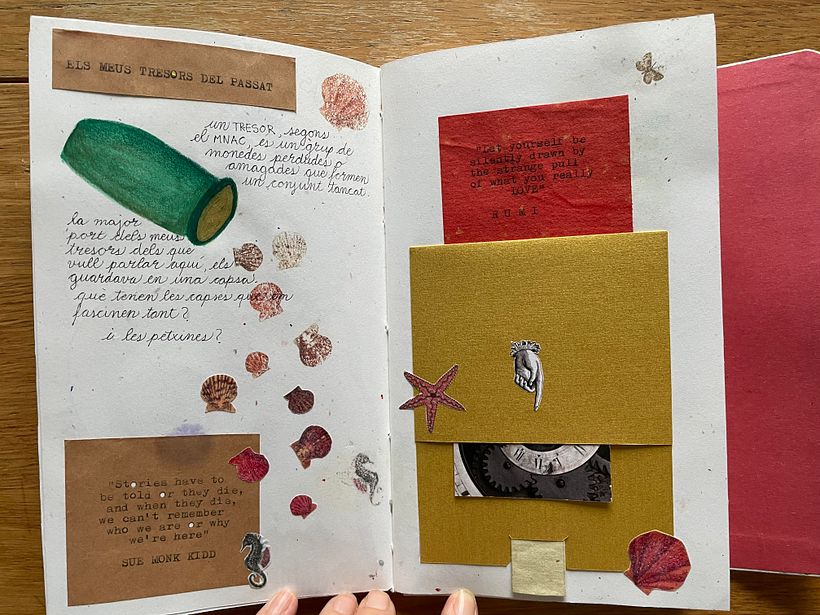 ELS MEUS TRESORS DEL PASSAT
un TRESOR, segons
el MNAC, es un grup de
monedes perdudes o
amagades que formen
un conjunt tancat.
la major
part dels meus
tresors dels que
vull parlar aquí, els
guardava en una capsa.
què tenen les capses que em
fascinen tant?
i les petxines?
"Stories have to
be told or they die,
and when they die,
we can't remember
who we are or why
we're here"
SUE MONK KIDD
"Let yourself be
silently drawn by
the strange pull
of what you really
LOVE"
RUMI